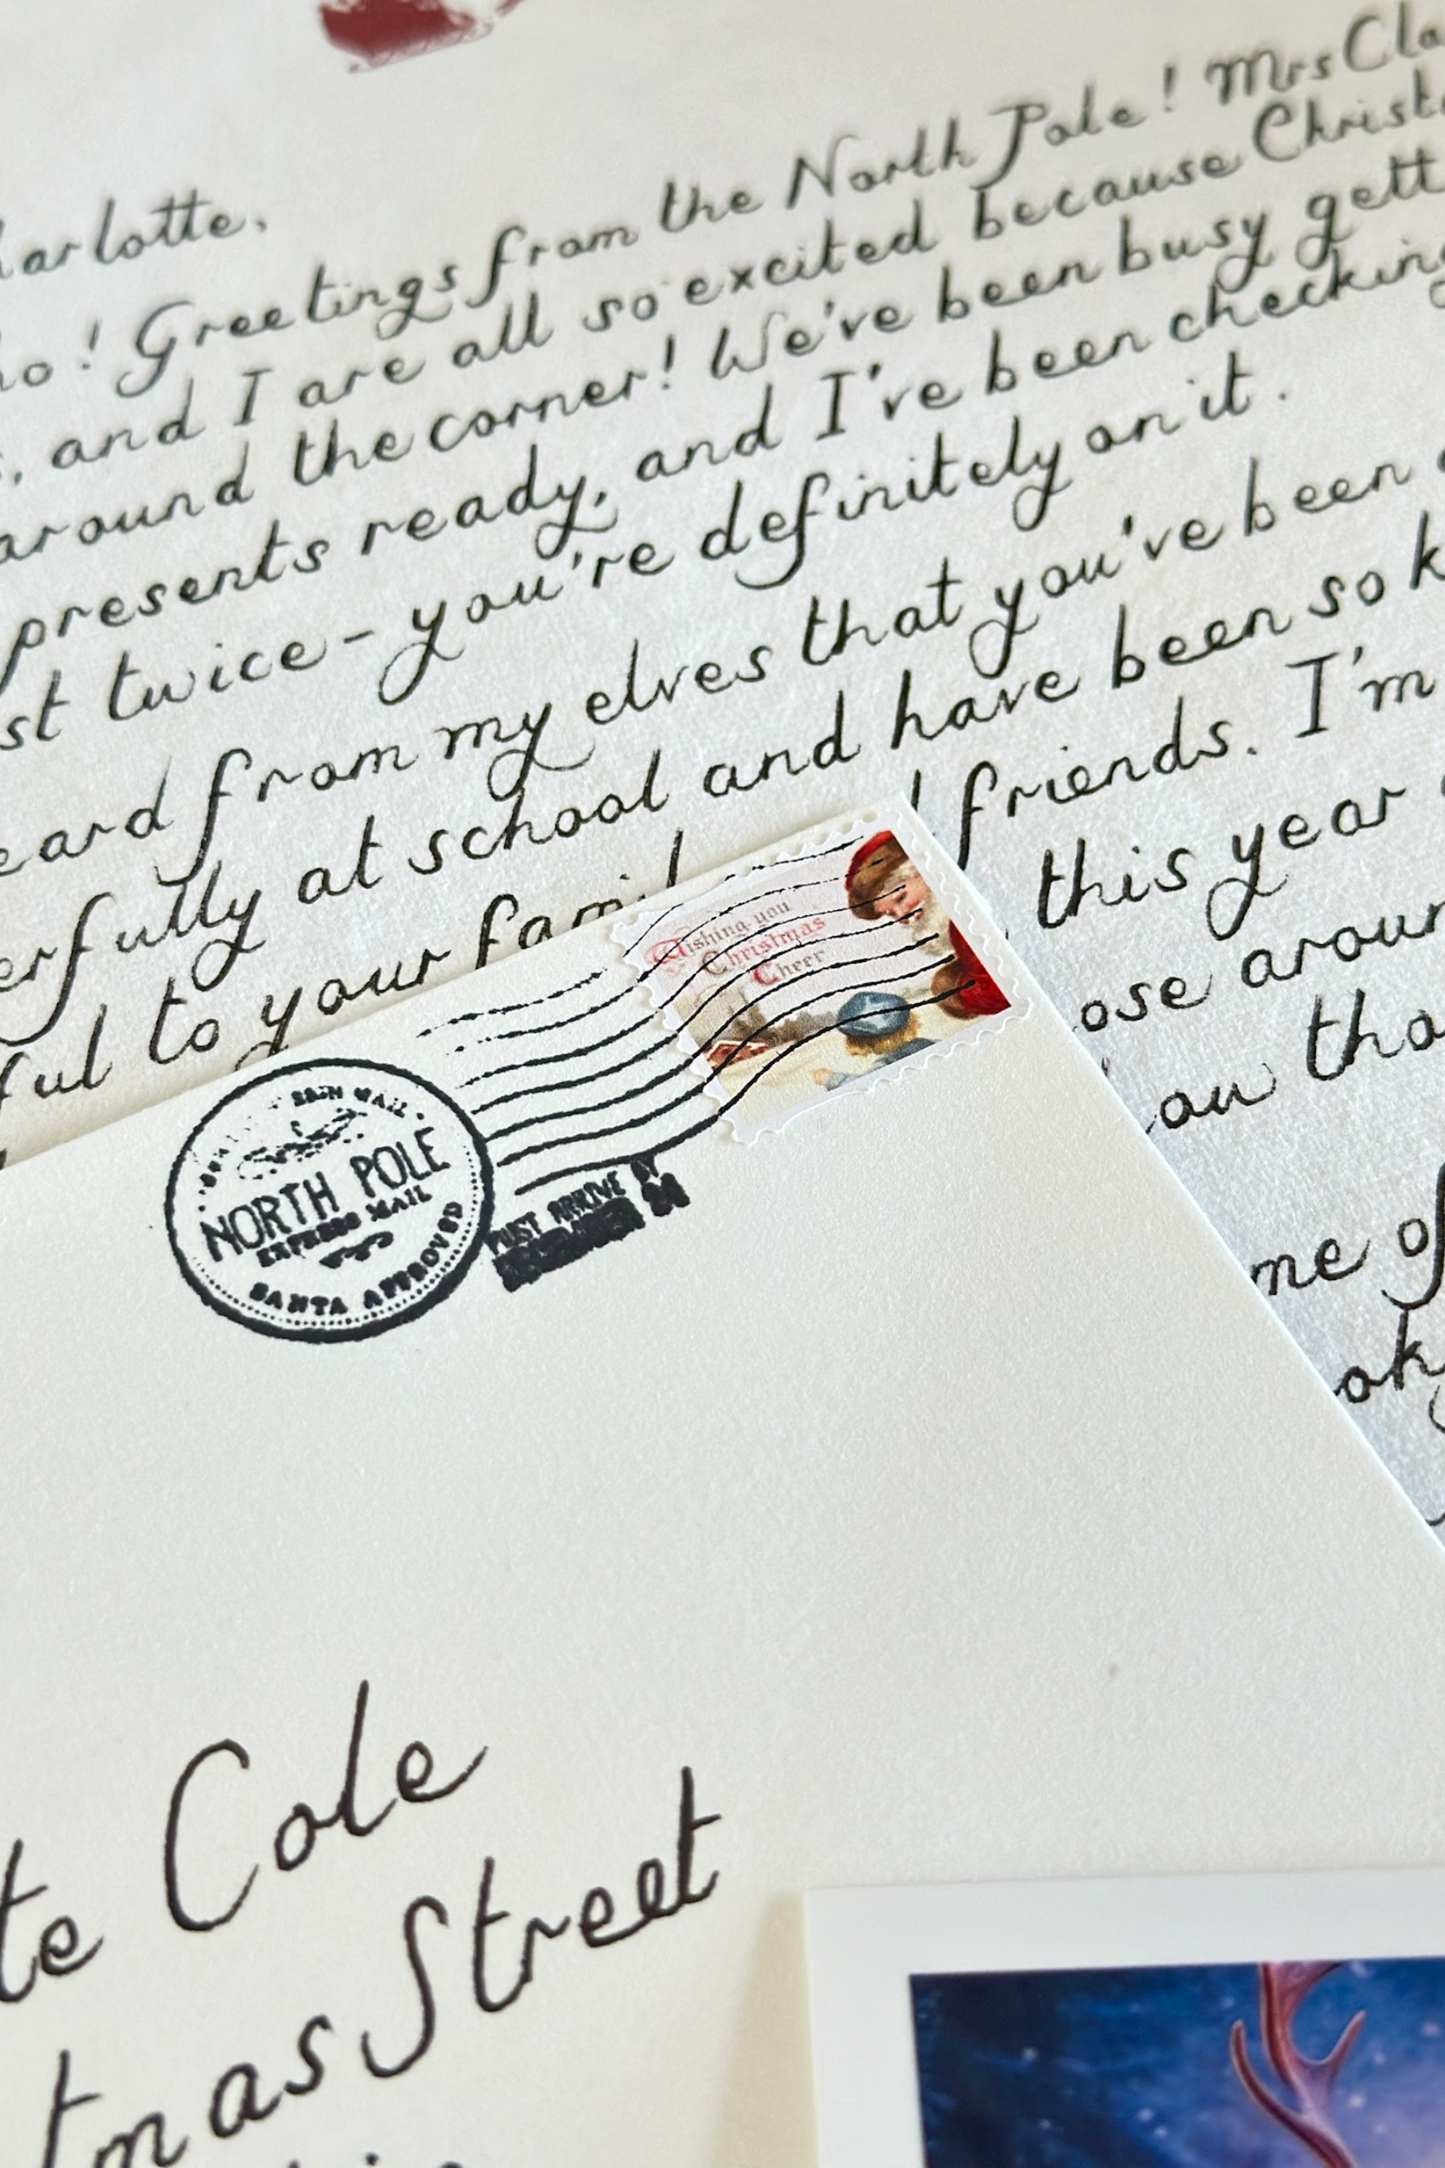 harlotte,
ho! Greetings from the North Pole! Mrs Cla
, and I are all so excited because Christ
around the corner! We've been busy gett
presents ready, and I've been checking
st twice - you're definitely on it.
eard from my elves that you've been
erfully at school and have been so k
ful to your famil friends. I'm
this year
ose aroun
ou tha
me of
ok
Wishing you
Christmas
Cheer
NORTH POLE
EXPRESS MAIL
SANTA APPROVED
MUST ARRIVE BY
DECEMBER 24
te Cole
tmas Street